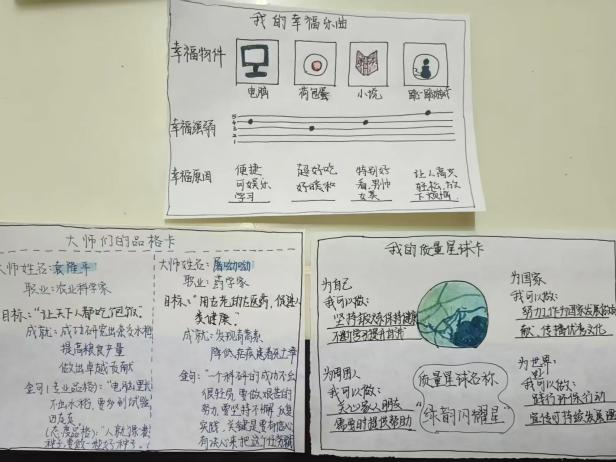 我的幸福乐曲
幸福物件
电脑 荷包蛋 小说
幸福强弱
5
4
3
2
1
幸福原因
便捷
可娱乐
学习
超好吃
好暖和
特别好
看,男帅
女美
让人高兴
轻松,放
下烦恼
大师们的品格卡
大师姓名:袁隆平
职业:农业科学家
目标:"让天下人都吃饱饭"
成就:成功研究出杂交水稻
提高粮食产量
做出卓越贡献
金句:(专业品格):"电脑里长
不出水稻,要多到试验
田
(态度品格):"人就像
种子,要做一粒好种子。"
大师姓名:屠呦呦
职业:药学家
目标:"用古老的中医药,促进人
类健康."
成就:发现青蒿素
降低疟疾患者死亡率
金句:"一个科研的成功不会
很轻易,要做艰苦的
努力,要坚持不懈、反复
实践,关键是要有信心
有决心来把这个任务
我的质量星球卡
为自己
我可以做:
坚持锻炼保持健康
不断学习提升自我
为国家
我可以做:
努力工作为国家发展贡
献、传播优秀文化
为周围人
我可以做:
关心家人朋友
需要时提供帮助
质量星球名称
"绿韵闪耀星"
为世界
我可以做:
践行环保行动
宣传可持续发展